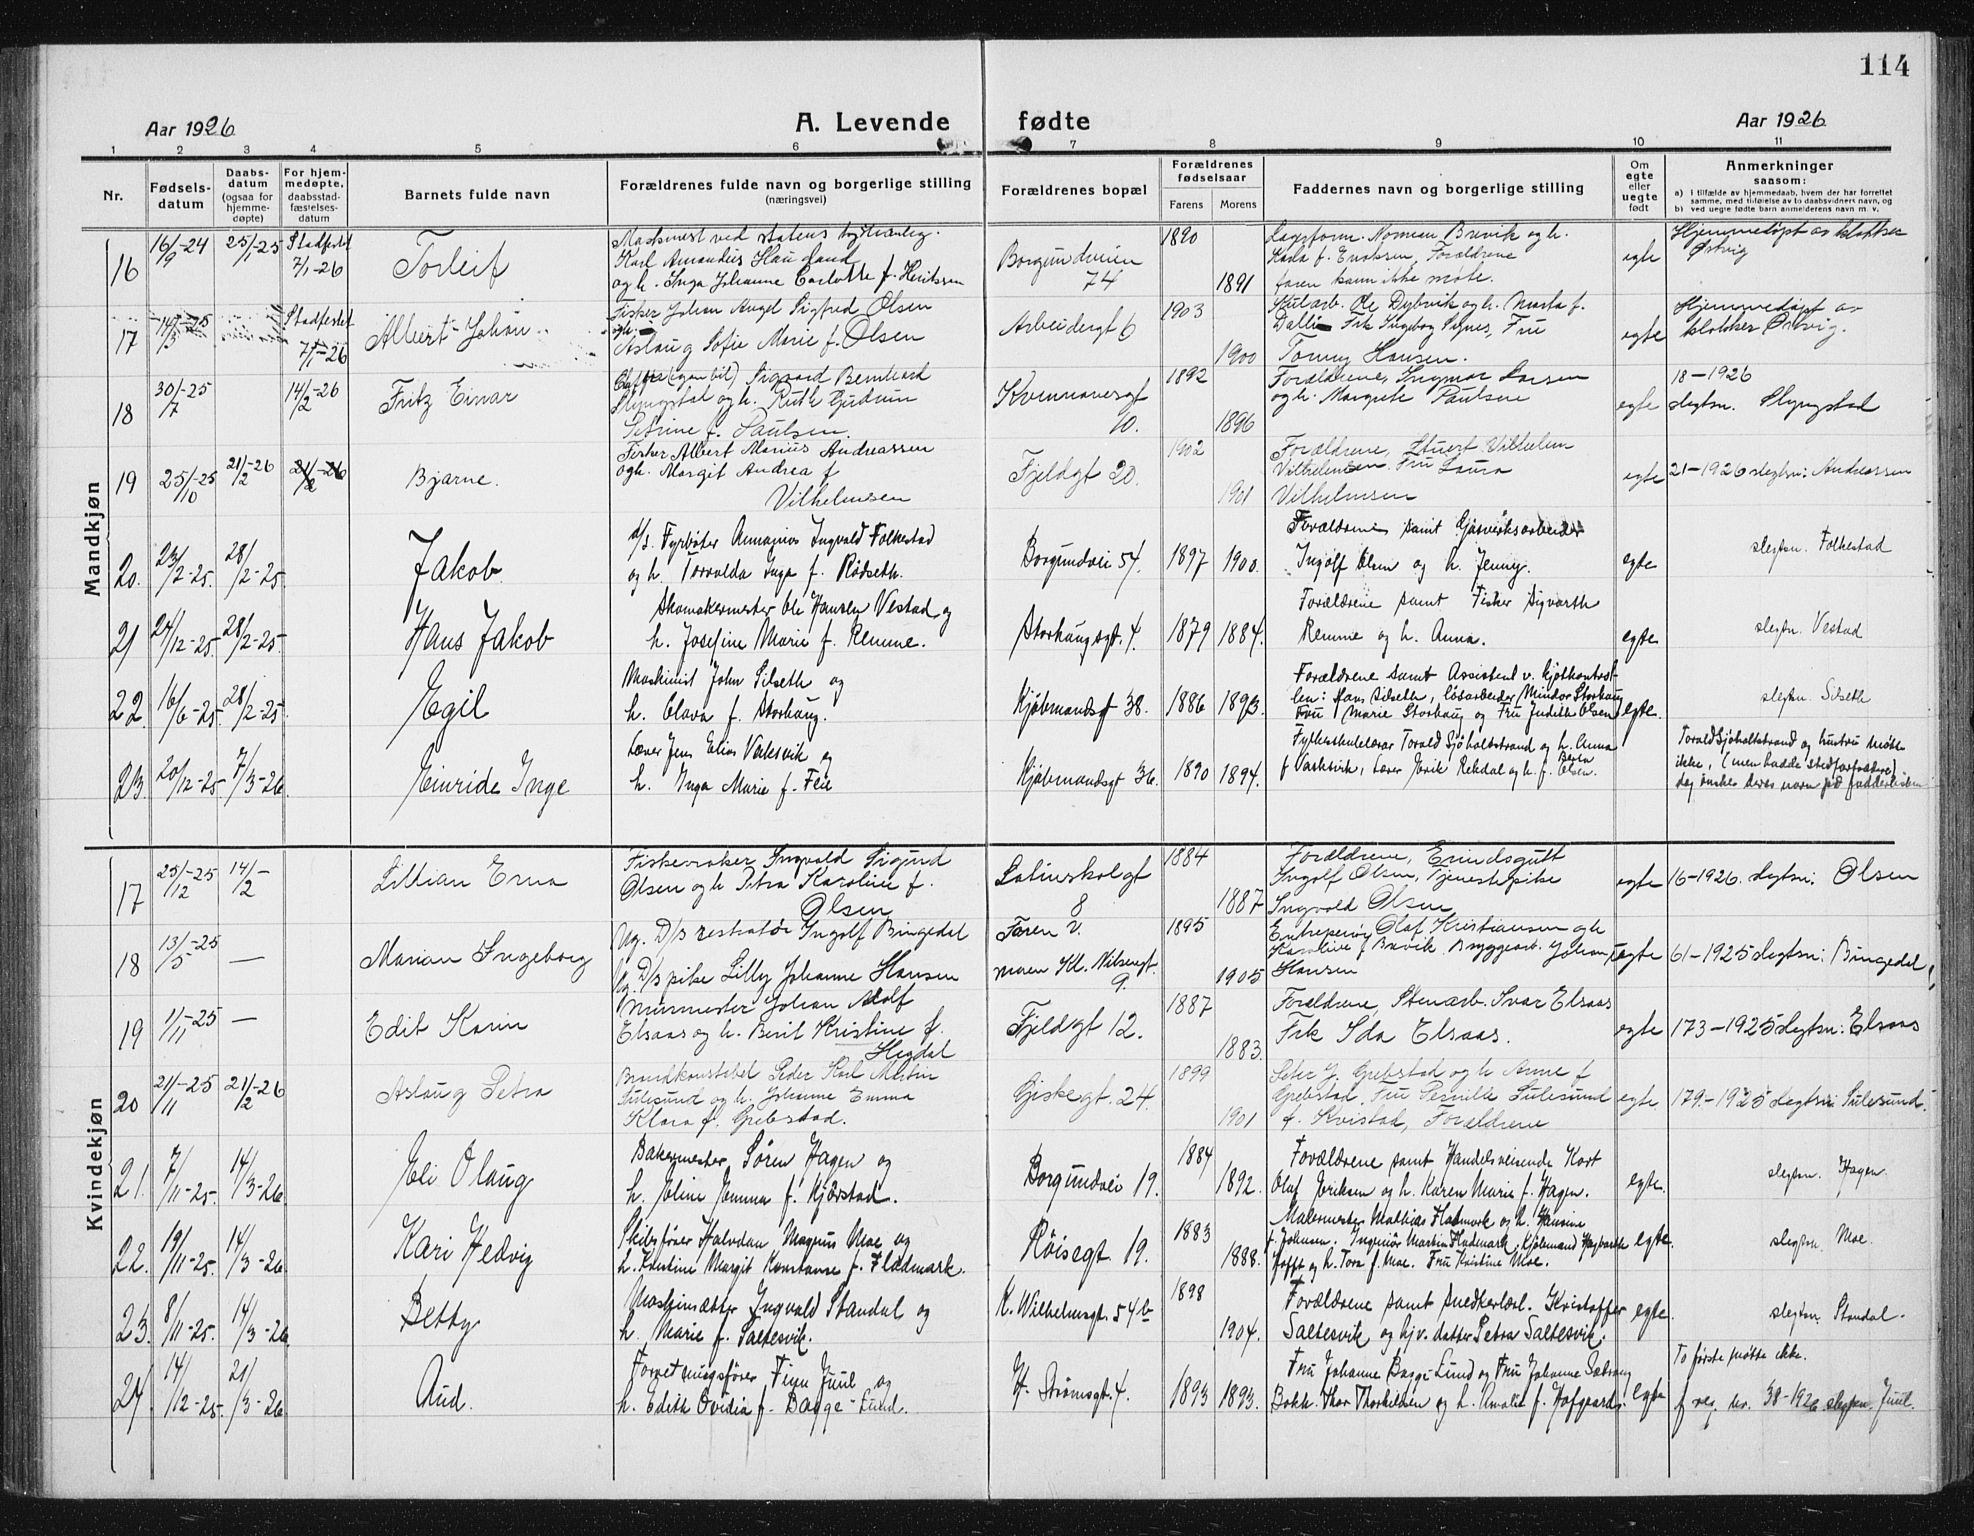 114
Aar 1926
A. Levende fødte
Aar 1926
1 2 3 4 5 6 7 8 9 10 11
Nr.
Fødsels-
datum
Daabs-
datum
(ogsaa for
hjemme-
døpte)
For hjem-
medøpte,
daabsstad-
fæstelses-
datum
Barnets fulde navn
Forældrenes fulde navn og borgerlige stilling
(næringsvei)
Forældrenes bopæl
Forældrenes
fødselsaar
Farens Morens
Faddernes navn og borgerlige stilling
Om
egte
eller
uegte
født
Anmerkninger
saasom:
a) I tilfælde av hjemmedaab, hvem der har forrettet
samme, med tilføielse av to daabsvidners navn, og
b) ved uegte fødte barn anmelderens navn m. v.
Mandkjøn
16 16/9-24 25/1-25 Stadfestet 7/1-26
Torleif
Maskinist ved statens
Karl Amandus
og h. Inga Johanne Carlotte f. Henriksen
Borgundveien
74
1890 1891
Norman Brevik og h.
Karla f. Eriksen, Forældrene
faren kunn ikke møte.
egte
Hjemmedøpt av klokker
Østvig
17 14/3-25 Stadfestet 7/1-26
Albert Johan
Fisker Johan Sigfred Olsen
og h.
Aslaug Sofie Marie f. Olsen
Arbeidergt 6
1903 1900
Ole Dybvik og h. Marta f.
Dalle Frk Ingeborg Fru
Tonny Hansen.
egte
Hjemmedøpt av
klokker Østvig.
18 30/7-25 14/2-26
Fritz Einar
(egen bil) Sigvard Bernhard
Slyngstad og h. Ruth Gudrun
Petrine f. Paulsen.
Kvennanesgt
10.
1892 1896
Forældrene, Ingmar Larsen
og h. Margrete Paulsen
egte
18-1926
slegtsn. Slyngstad
19 25/10-25 21/2-26 21/2-26
Bjarne.
Fisker Albert Marius Andreassen
og h. Margit Andrea f
Vilhelmsen
Fjeldgt 20.
1902 1901
Forældrene, Stuert Vilhelm
Vilhelmsen Fru Laura
Vilhelmsen
egte
21-1926 slegtsn: Andreassen
20. 23/2-25. 28/2-25.
Jakob
d/s. Fyrbøter Annanias Ingvald Folkestad
og h. Torvalda Inga f. Rødseth.
Borgundvei 54.
1897 1900.
Forældrene samt Gasverksarbeider
Ingolf Olsen og h. Jenny.
egte
slegtsn. Folkestad
21 24/12-25. 28/2-25.
Hans Jakob
Skomakermester Ole Hansen Vestad og
h. Josefine Marie f. Remme.
Storhaugsgt. 4.
1879 1884.
Forældrene samt Fisker Sigvarth
Remme og h. Anna.
egte
slegtsn. Vestad
22. 16/6-25. 28/2-25.
Egil
Maskinist John Silseth og
h. Olava f. Storhaug.
Kjøbmandsgt 38.
1886 1893.
Forældrene samt Assistent v. kjøtkontrol-
len: Hans Silseth, løsarbeider Mindor Storhaug
Fru Marie Storhaug og Fru Judith Olsen
egte.
slegtsn. Silseth
23. 20/12-25. 7/3-26.
Einride Inge
Lærer Jens Elias Vaksvik og
h. Inga Marie f. Feie
Kjøbmandsgt 36.
1890 1894.
Fylkesskulelærar Torvald Sjøholtstrand og h. Anna
f Vaksvik, Lærer Eirik Rekdal og h. Berta f. Olsen.
Torvald Sjøholtstrand og hustru møtte
ikke, (men hadde stedfortrædere).
Jeg ønsker deres navn på fadderlisten
Kvindekjøn
17 25/12-25 14/2-
Lillian Erna
Fiskevraker Ingvald Sigurd
Olsen og h Petra Karoline f.
Olsen
Latinskolegt
8
1884 1887
Forældrene, Erindsgutt
Ingolf Olsen, Tjenestepike
Ingvold Olsen
egte
16-1926. slegtsn: Olsen
18 13/5-25 —
Marian Ingeborg
Ug. D/s restratør Ingolf Bingedal
Ug. D/s pike Lilly Johanne Hansen
Faren V.
moren Kl. Nilsengt.
9.
1895 1905
Entreprenør Olaf Kristiansen og h
Karoline f. Brevik. Bryggearb. Johan
Hansen
uegte
61-1925 slegtsn: Bingedal
19 11/11-25 —
Edit Karin
Murmester Johan Adolf
Elsaas og h. Berit Kristine f.
Hegdal
Fjeldgt 12.
1887 1883.
Forældrene, Stenarb. Ivar Elsaas
Frk Ida Elsaas.
egte
173-1925 slegtsn: Elsaas
20 21/11-25 21/2-26
Aslaug Petra
Brandkonstabel Peder Karl Martin
Sulesund og h. Johanne Emma
Klara f. Grebstad.
Giskegt 24.
1899 1901
Peter J. Grebstad og h Anne f
Grebstad. Fru Pernille Sulesund
f. Kvistad, Forældrene
egte
179-1925 slegtsn: Sulesund.
21. 7/11-25. 14/3-26.
Eli Olaug
Bakermester Søren Hagen og
h. Eline Emma f. Kjørstad.
Borgundvei 19.
1884 1892.
Forældrene samt Handelsreisende Kort
Olaf Eriksen og h. Karen Marie f. Hagen.
egte.
slegtsn. Hagen.
22. 19/11-25. 14/3-26.
Kari Hedvig
Skibsfører Halvdan Magnus Moe og
h. Kristine Margit Konstanse f. Fladmark.
Røisegt 19.
1883 1888.
Malermester Mathias Flatmark og h. Hansine
f. Johnsen. Ingeniør Martin Fladmark, Kjøbmand
og h. Tora f. Moe. Fru Kristine Moe.
egte.
slegtsn. Moe.
23. 8/11-25. 14/3-26.
Betty
Maskinsætter Ingvald Standal og
h. Marie f. Saltesvik.
K. Wilhelmsgt. 54b
1898 1904.
Forældrene samt Snedkerlærl. Kristoffer
Saltesvik og hjv. datter Petra Saltesvik.
egte.
slegtsn. Standal.
24. 14/12-25. 21/3-26.
Aud.
Forretningsfører Finn Juul og
h. Edith Ovidia f. Bagge-Lund.
H. Strømsgt. 4.
1893 1893.
Fru Johanne Bagge Lund og Fru Johanne
Bokh. Thor Thorkildsen og h. Amalie f. Hofgaard.
egte
To første møtte ikke.
f reg. nr. 38-1926 slegtsn. Juul.